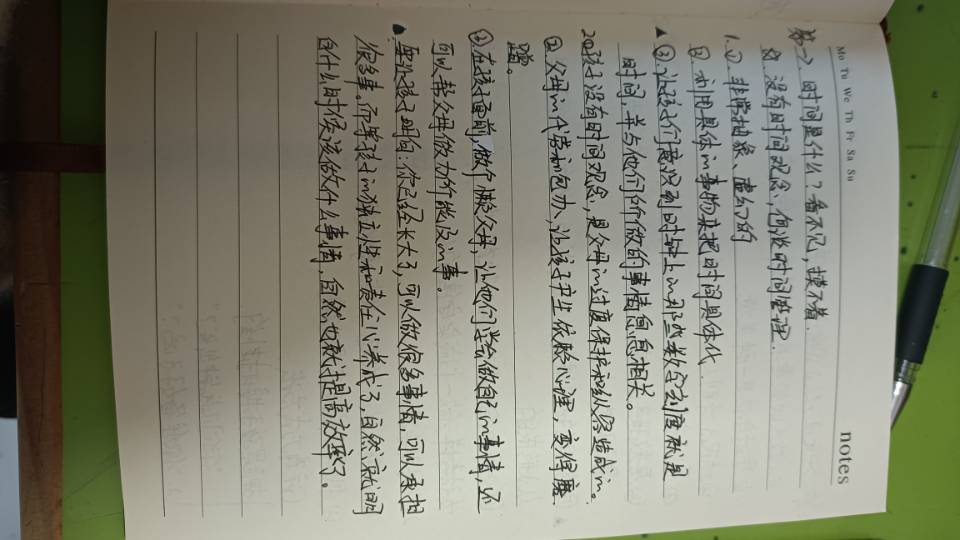 Mo Tu We Th Fr Sa Su
notes
第一、时间是什么?看不见,摸不着.
没有时间观念,何谈时间管理.
1.①.非常抽象,虚幻的
②.利用具体的事物来把时间具体化
▲③.让孩子们意识到时钟上的那些数字刻度就是
时间,并与他们所做的事情息息相关。
2①孩子没有时间观念,是父母的过度保护和纵容造成的。
②父母的代劳和包办,让孩子产生依赖心理,变得磨
蹭。
③在孩子面前,做个懒父母,让他们学会做自己的事情,还
可以帮父母做力所能及的事。
▲要让孩子明白:你已经长大了,可以做很多事情,可以承担
很多事。而等孩子的独立性和责任心养成了,自然就明
白什么时候该做什么事情,自然也就提高效率了。